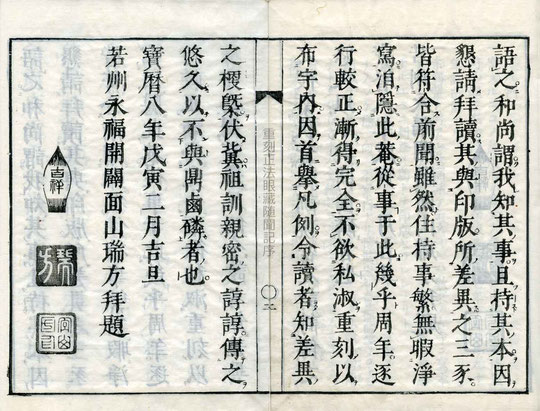 語之和尚謂我知其事且持其本因
懇請拜讀其與印版所差異之三豕
皆符合前聞雖然住持事繁無暇淨
寫洎隱此菴從事于此幾乎周年逐
行較正漸得完全不欲私淑重刻以
布宇内因首擧凡例令讀者知差異
重刻正法眼藏隨聞記序
之梗槩伏冀祖訓親密之諄諄傳之
悠久以不與鼎鹵磷者也
寶曆八年戊寅二月吉旦
若州永福開闢面山瑞方拜題
吉祥